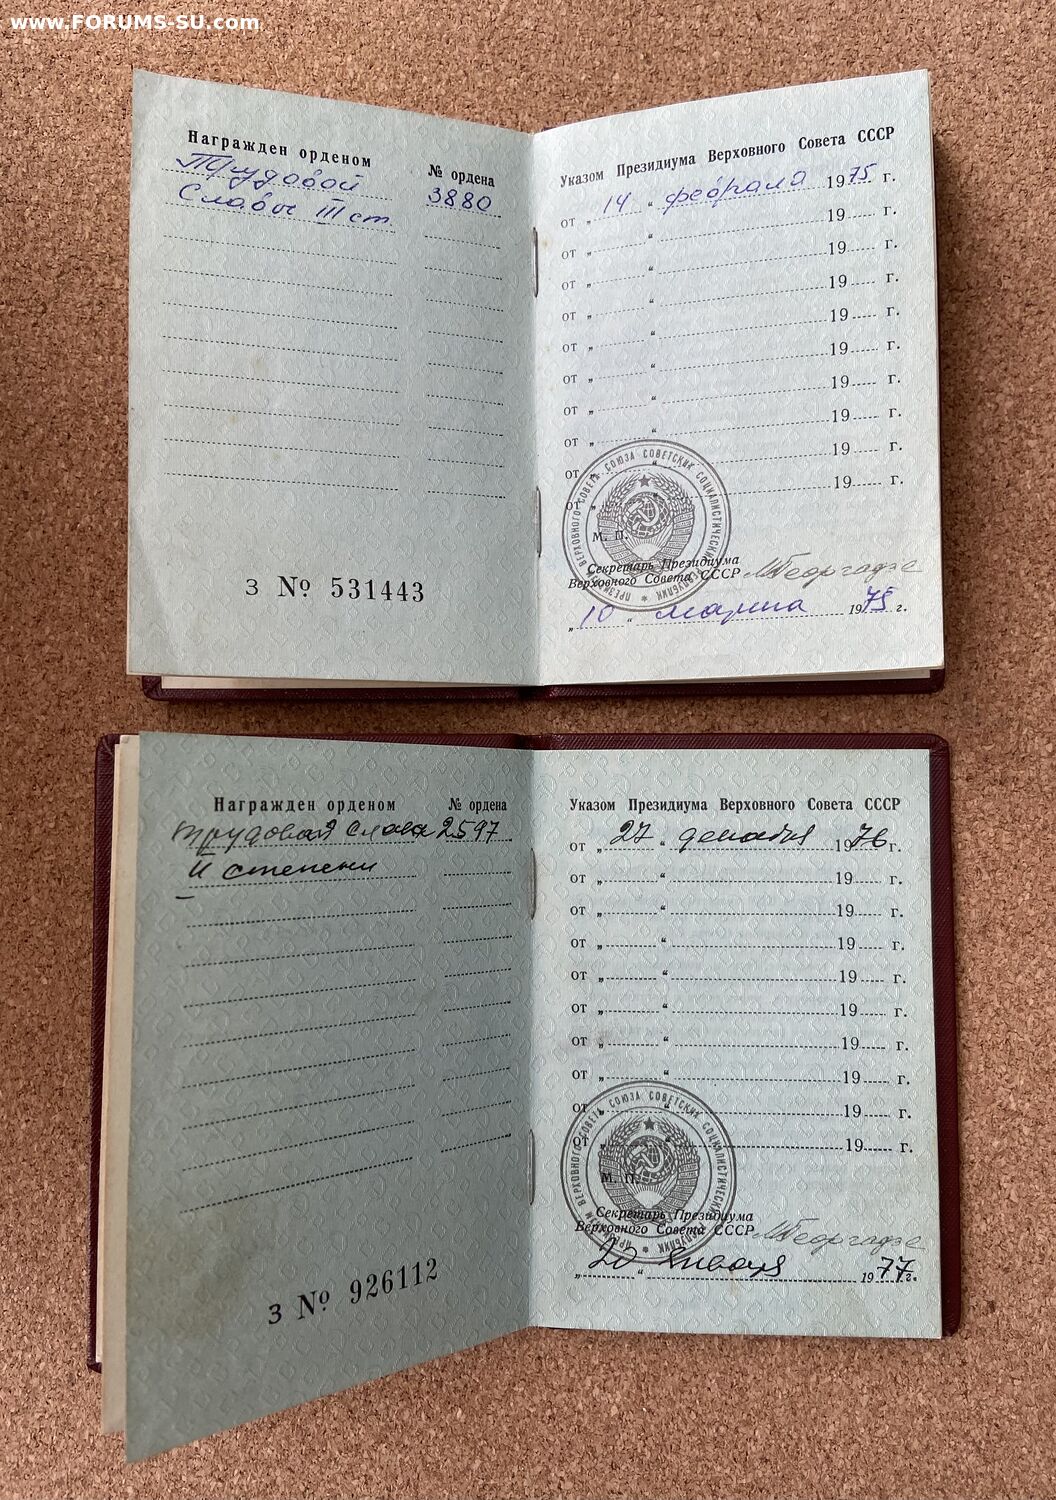 www.FORUMS-SU.com
Награжден орденом
№ ордена
Трудовой
3880
Славы III ст.
З № 531443
Указом Президиума Верховного Совета СССР
от „ 14 “ февраля 1975 г.
от „ “ 19 г.
от „ “ 19 г.
от „ “ 19 г.
от „ “ 19 г.
от „ “ 19 г.
от „ “ 19 г.
от „ “ 19 г.
от „ “ 19 г.
от „ “ 19 г.
ПРЕЗИДИУМ ВЕРХОВНОГО СОВЕТА СОЮЗА СОВЕТСКИХ СОЦИАЛИСТИЧЕСКИХ РЕСПУБЛИК
М. П.
Секретарь Президиума
Верховного Совета СССР МГеоргадзе
„ 10 “ марта 1975 г.
Награжден орденом № ордена
Трудовая Слава 2597
II степени
З № 926112
Указом Президиума Верховного Совета СССР
от „ 27 “ декабря 1976 г.
от „ “ 19 г.
от „ “ 19 г.
от „ “ 19 г.
от „ “ 19 г.
от „ “ 19 г.
от „ “ 19 г.
от „ “ 19 г.
от „ “ 19 г.
от „ “ 19 г.
ПРЕЗИДИУМ ВЕРХОВНОГО СОВЕТА СОЮЗА СОВЕТСКИХ СОЦИАЛИСТИЧЕСКИХ РЕСПУБЛИК
М. П.
Секретарь Президиума
Верховного Совета СССР МГеоргадзе
„ 20 “ января 1977 г.